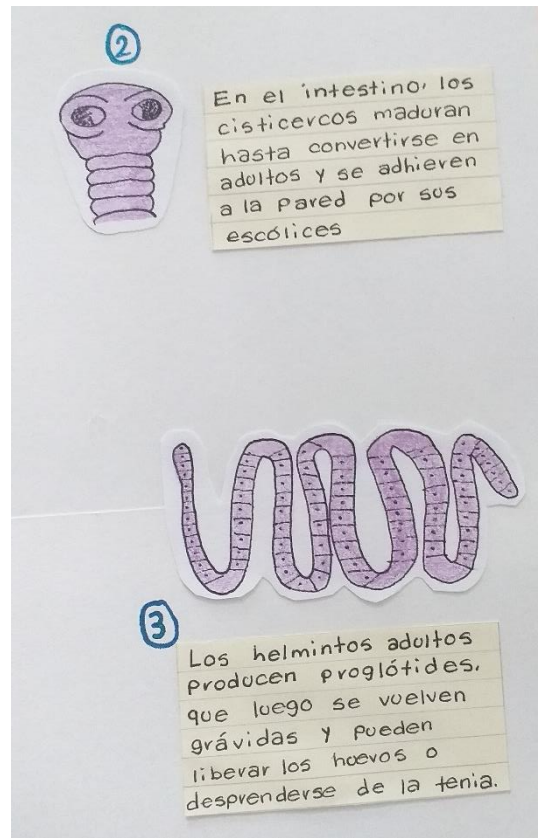 2
En el intestino, los
cisticercos maduran
hasta convertirse en
adultos y se adhieren
a la pared por sus
escólices
3
Los helmintos adultos
producen proglótides,
que luego se vuelven
grávidas y pueden
liberar los huevos o
desprenderse de la tenia.